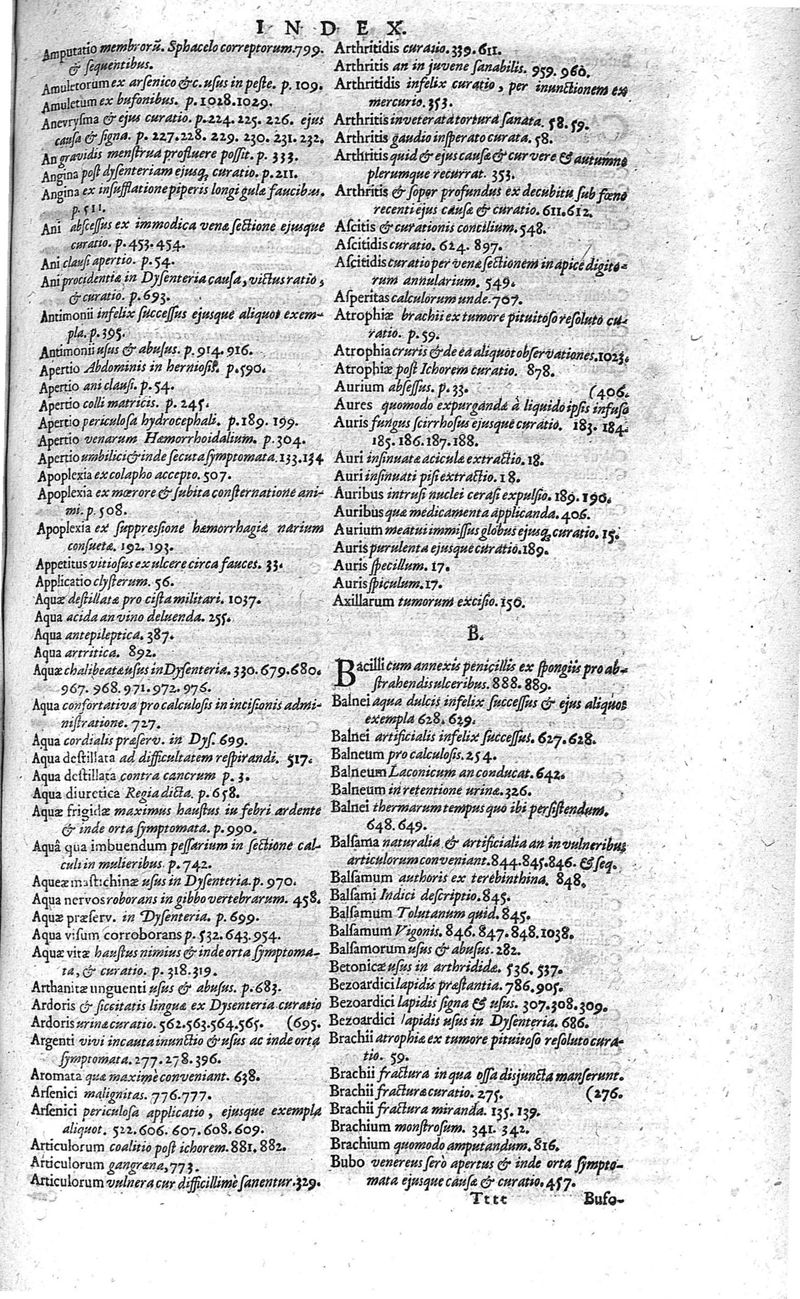 INDEX.
Amputatio membrorũ. Sphacelo correptorum.799.
& sequentibus.
Amuletorum ex arsenico &c. usus in peste. p. 109.
Amuletum ex bufonibus. p. 1028.1029.
Anevrysma & ejus curatio. p.224. 225. 226. ejus
causa & signa. p. 227.228. 229. 230. 231.232.
An gravidis menstrua profluere possit. p. 333.
Angina post dysenteriam ejusq; curatio. p.211.
Angina ex insufflatione piperis longi gulæ faucibus.
p.511.
Ani abscessus ex immodica venæ sectione ejusque
curatio. p. 453-454.
Ani clausi apertio. p.54.
Ani procidentiæ in Dysenteria causa, victus ratio,
& curatio. p.693.
Antimonii infelix successus ejusque aliquot exem-
pla. p.395.
Antimonii usus & abusus. p.914. 916.
Apertio Abdominis in herniosis. p.590.
Apertio ani clausi. p.54.
Apertio colli matricis. p.245.
Apertio periculosa hydrocephali. p.189. 199.
Apertio venarum Hæmorrhoidalium. p.304.
Apertio umbilici & inde secuta symptomata.133.134
Apoplexia ex colapho accepto. 507.
Apoplexia ex mœrore & subita consternatione ani-
mi. p. 508.
Apoplexia ex suppressione hæmorrhagiæ narium
consuetæ. 192. 193.
Appetitus vitiosus ex ulcere circa fauces. 33.
Applicatio clysterum. 56.
Aquæ destillatæ pro cista militari. 1037.
Aqua acida an vino deluenda. 255.
Aqua antepileptica. 387.
Aqua artritica. 892.
Aquæ chalibeatæ usus in Dysenteria. 330.679.680.
967. 968.971.972.976.
Aqua confortativa pro calculosis in incisionis admi-
nistratione. 727.
Aqua cordialis præserv. in Dys. 699.
Aqua destillata ad difficultatem respirandi. 517.
Aqua destillata contra cancrum p. 3.
Aqua diuretica Regia dicta. p.658.
Aquæ frigidæ maximus haustus iu febri ardente
& inde orta symptomata. p.990.
Aquâ qua imbuendum pessarium in sectione cal-
culi in mulieribus p.742.
Aqueæ mastichinæ usus in Dysenteria.p. 970.
Aqua nervos roborans in gibbo vertebrarum. 458.
Aquæ præserv. in Dysenteria. p.699.
Aqua visum corroborans p.532.643.954.
Aquæ vitæ haustus nimius & inde orta symptoma-
ta, & curatio. p.318.319.
Arthanitæ unguenti usus & abusus. p.683.
Ardoris & siccitatis linguæ ex Dysenteria curatio
Ardoris urinæ curatio. 562.563.564.565. (695.
Argenti vivi incauta inunctio & usus ac inde orta
symptomata. 277.278.396.
Aromata quæ maximè conveniant. 638.
Arsenici malignitas. 776.777.
Arsenici periculosa applicatio, ejusque exempla
aliquot. 522.606. 607.608.609.
Articulorum coalitio post ichorem. 881.882.
Articulorum gangræna.773.
Articulorum vulnera cur difficillimè sanentur.329.
Arthritidis curatio. 339.611.
Arthritis an in juvene sanabilis. 959. 960.
Arthritidis infelix curatio, per inunctionem ex
mercurio. 353.
Arthritis inveterata tortura sanata. 58.59.
Arthritis gaudio insperato curata. 58.
Arthritis quid & ejus causæ & cur vere & autumno
plerumque recurrat. 353.
Arthritis & sopor profundus ex decubitu sub fœno
recenti ejus causæ & curatio. 611.612.
Ascitis & curationis concilium. 548.
Ascitidis curatio. 624. 897.
Ascitidis curatio per venæ sectionem in apice digito-
rum annularium. 549.
Asperitas calculorum unde. 707.
Atrophiæ brachii ex tumore pituitoso resoluto cu-
ratio. p.59.
Atrophia cruris & de ea aliquot observationes.1023.
Atrophiæ post Ichorem curatio. 878.
Aurium abssessus. p.33. (406.
Aures quomodo expurgandæ à liquido ipsis infuso
Auris fungus scirrhosus ejusque curatio. 183. 184.
185.186.187.188.
Auri insinuatæ aciculæ extractio. 18.
Auri insinuati pisi extractio. 18.
Auribus intrusi nuclei cerasi expulsio. 189.190.
Auribus quæ medicamenta applicanda. 406.
Aurium meatui immissus globus ejusq; curatio. 15.
Auris purulenta ejusque curatio.189.
Auris specillum. 17.
Auris spiculum. 17.
Axillarum tumorum excisio. 150.
B.
Bacilli cum annexis penicillis ex spongiis pro ab-
strahendis ulceribus. 888.889.
Balnei aqua dulcis infelix successus & ejus aliquot
exempla 628. 629.
Balnei artificialis infelix successus. 627.628.
Balneum pro calculosis. 254.
Balneum Laconicum an conducat. 642.
Balneum in retentione urinæ. 326.
Balnei thermarum tempus quo ibi persistendum.
648.649.
Balsama naturalia & artificialia an in vulneribus
articulorum conveniant.844.845.846. & seq.
Balsamum authoris ex terebinthina. 848.
Balsami Indici descriptio. 845.
Balsamum Tolutanum quid. 845.
Balsamum Vigonis. 846.847.848.1038.
Balsamorum usus & abusus. 282.
Betonicæ usus in arthridide. 536. 537.
Bezoardici lapidis præstantia. 786.905.
Bezoardici lapidis signa & usus. 307.308.309.
Bezoardici lapidis usus in Dysenteria. 686.
Brachii atrophiæ ex tumore pituitoso resoluto cura-
tio. 59.
Brachii fractura in qua ossa disjuncta manserunt.
Brachii fracturæ curatio. 275. (276.
Brachii fractura miranda. 135. 139.
Brachium monstrosum. 341. 342.
Brachium quomodo amputandum. 816.
Bubo venereus serò apertus & inde orta sympto-
mata ejusque causæ & curatio. 457.
Tttt Bufo-